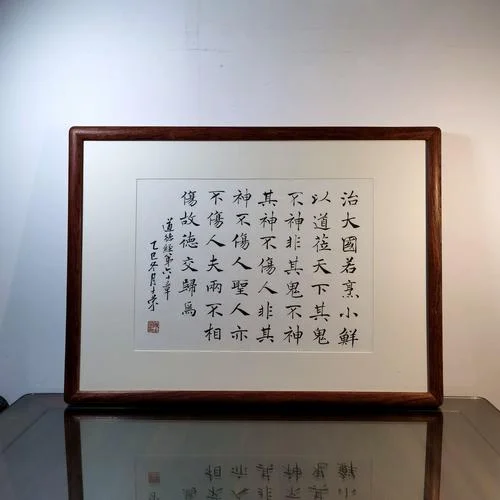 治大國若烹小鮮
以道莅天下其鬼
不神非其鬼不神
其神不傷人非其
神不傷人聖人亦
不傷人夫兩不相
傷故德交歸焉
道德經第六十章
乙巳冬月